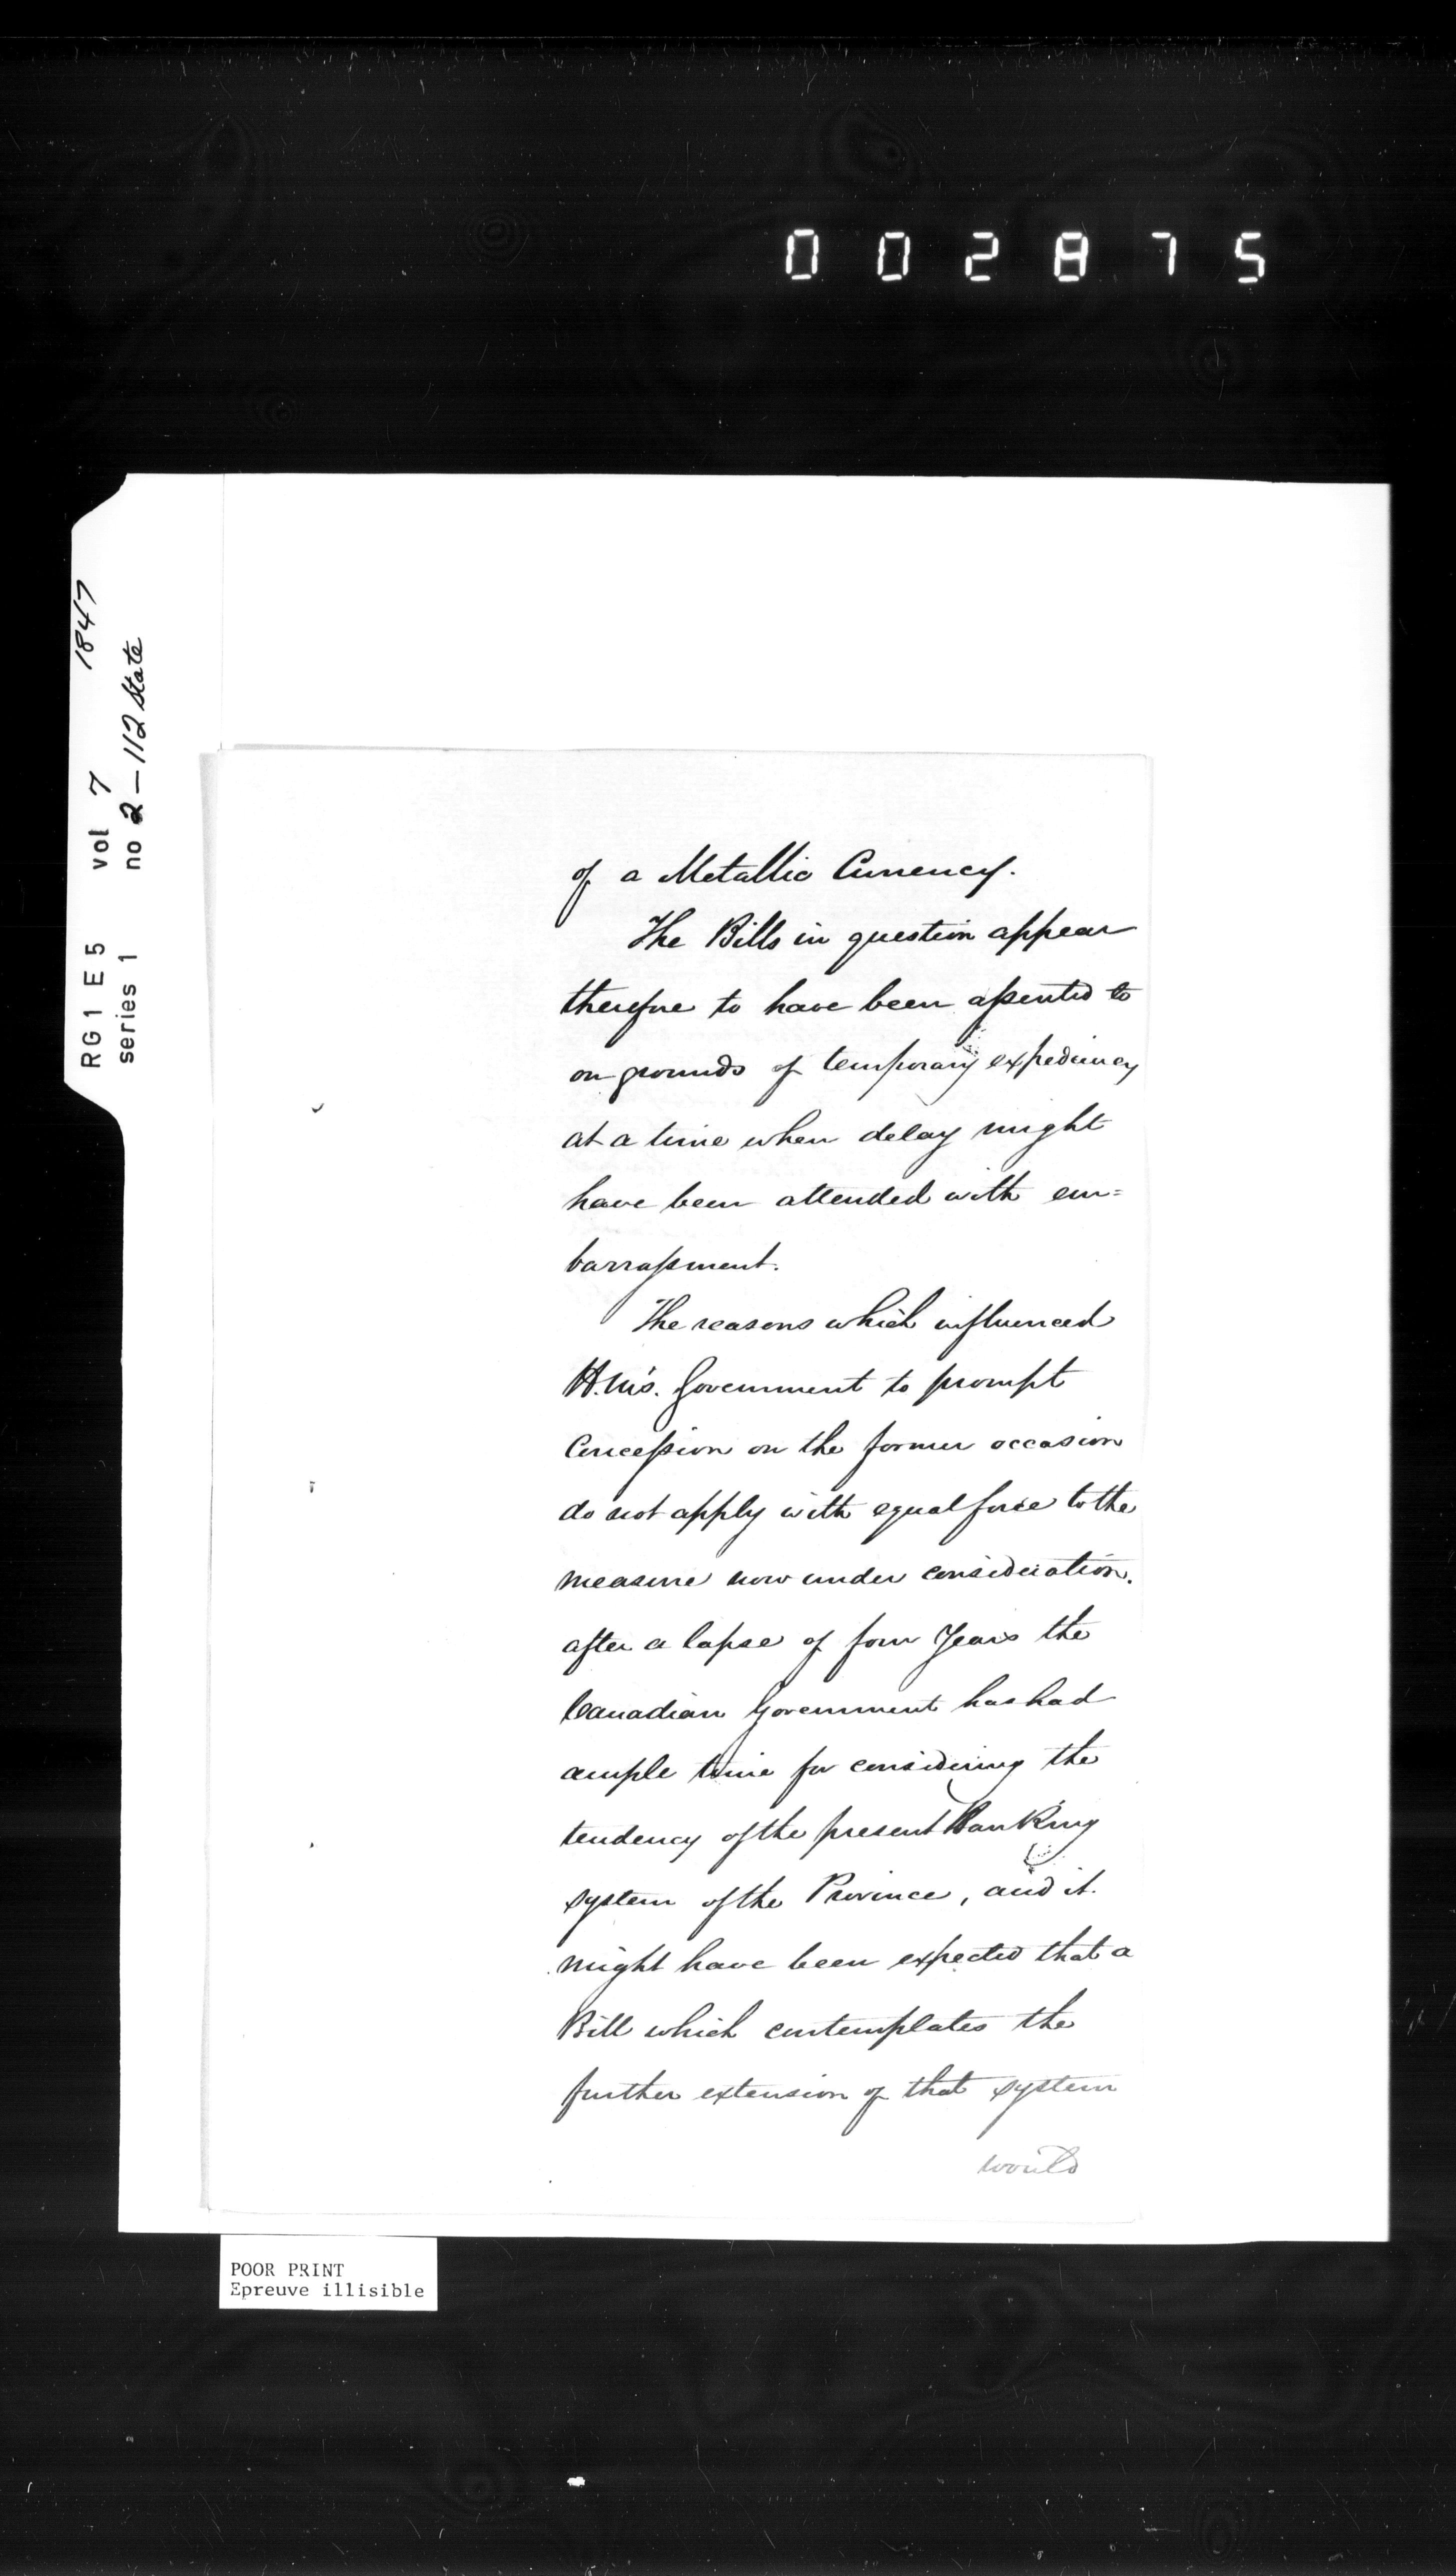 002875
RG1 E5 vol 7 1847
series 1 no 2-112 State
of a Metallic Currency.
The Bills in question appear
therefore to have been assented to
on grounds of temporary expediency
at a time when delay might
have been attended with em=
barrassment.
The reasons which influenced
H.M's. Government to prompt
Concession on the former occasion
do not apply with equal force to the
measure now under consideration.
after a lapse of four Years the
Canadian Government has had
ample time for considering the
tendency of the present Banking
system of the Province, and it
might have been expected that a
Bill which contemplates the
further extension of that system
would
POOR PRINT
Epreuve illisible